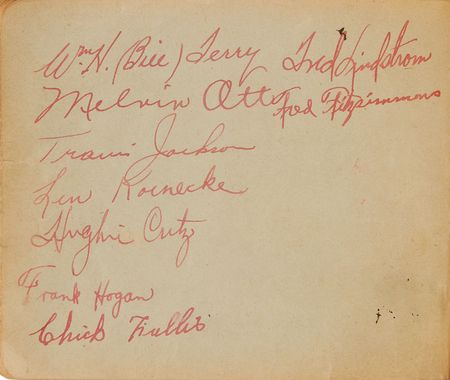 Wm H. (Bill) Terry
Fred Lindstrom
Melvin Ott
Fred Fitzsimmons
Travis Jackson
Len Koenecke
Hughie Critz
Frank Hogan
Chick Fullis